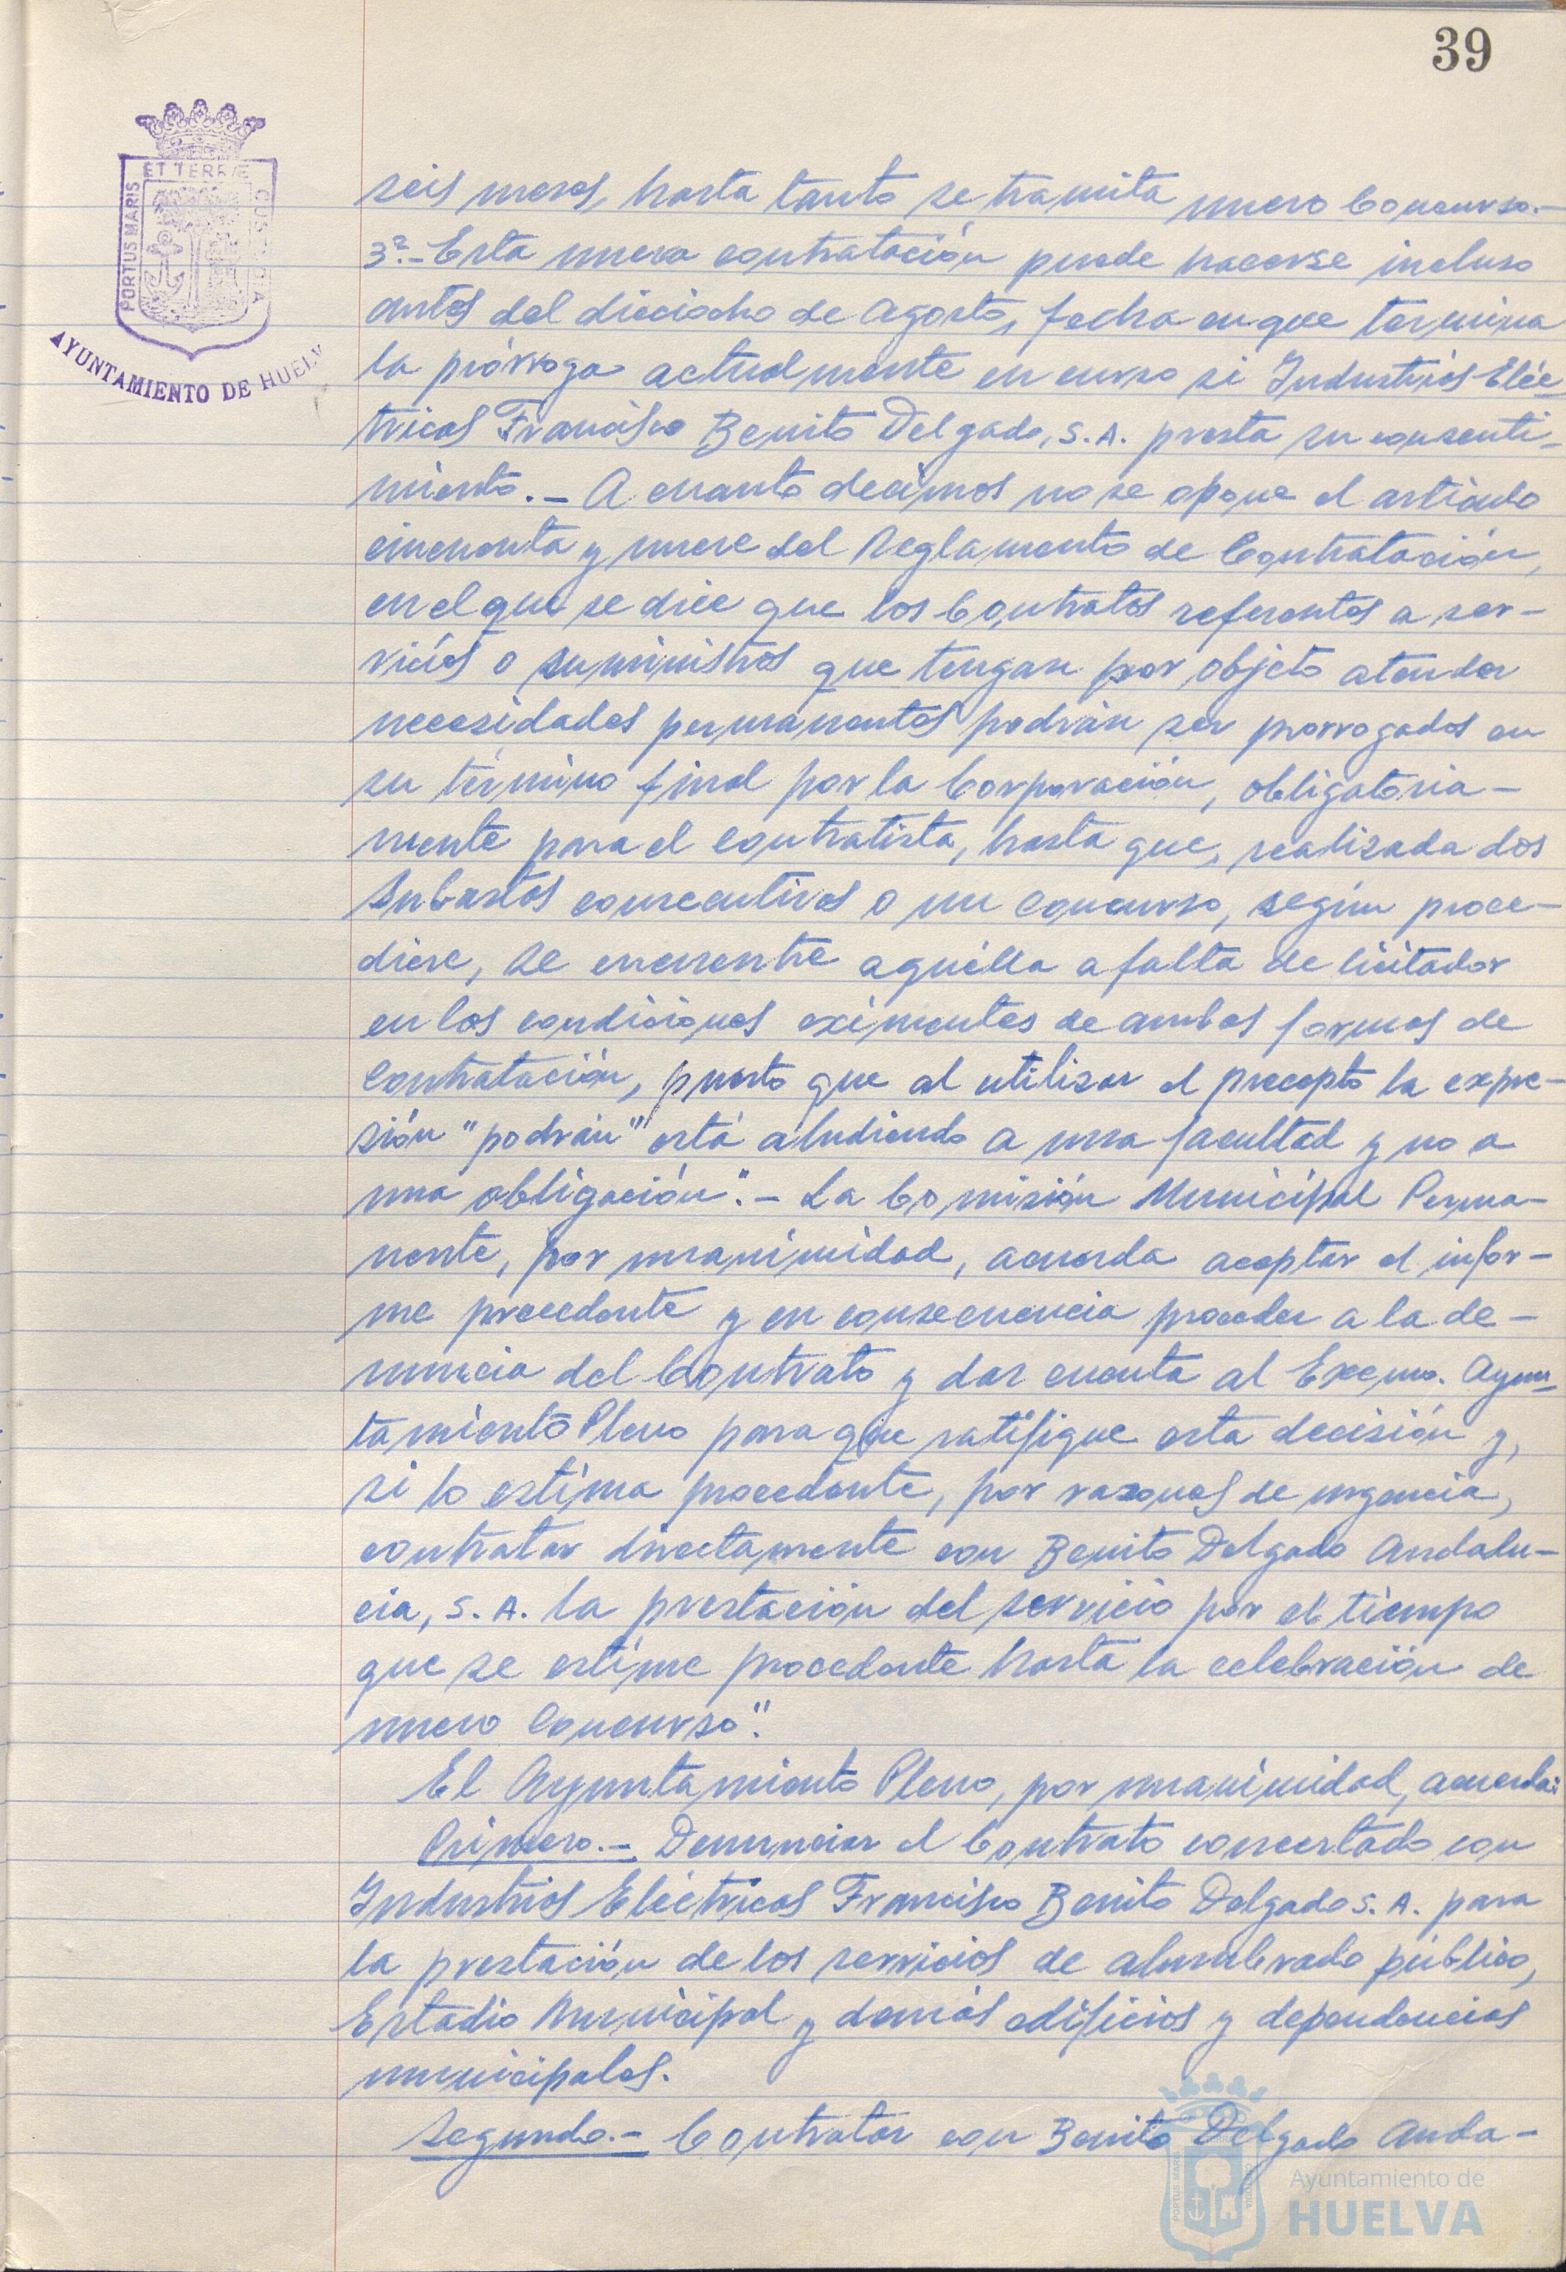 39
ET TERRÆ
PORTUS MARIS
CUSTODIA
AYUNTAMIENTO DE HUELV
seis meses, hasta tanto se tramita nuevo Concurso.-
3º.- Esta nueva contratación puede hacerse incluso
antes del dieciocho de Agosto, fecha en que termina
la prórroga actualmente en curso si Industrias Eléc-
tricas Francisco Benito Delgado, S.A. presta su consenti-
miento.- A cuanto decimos no se opone el artículo
cincuenta y nueve del Reglamento de Contratación,
en el que se dice que los Contratos referentes a ser-
vicios o suministros que tengan por objeto atender
necesidades permanentes podrán ser prorrogados en
su término final por la Corporación, obligatoria-
mente para el contratista, hasta que, realizada dos
subastas consecutivas o un concurso, según proce-
diere, se encuentre aquélla a falta de licitador
en las condiciones eximentes de ambas formas de
contratación, puesto que al utilizar el precepto la expre-
sión "podrán" está aludiendo a una facultad y no a
una obligación".- La Comisión Municipal Perma-
nente, por unanimidad, acuerda aceptar el infor-
me precedente y en consecuencia proceder a la de-
nuncia del Contrato y dar cuenta al Excmo. Ayun-
tamiento Pleno para que ratifique esta decisión y,
si lo estima procedente, por razones de urgencia,
contratar directamente con Benito Delgado Andalu-
cia, S.A. la prestación del servicio por el tiempo
que se estime procedente hasta la celebración de
nuevo Concurso".
El Ayuntamiento Pleno, por unanimidad, acuerda:
Primero.- Denunciar el Contrato concertado con
Industrias Eléctricas Francisco Benito Delgado S.A. para
la prestación de los servicios de alumbrado público,
Estadio Municipal y demás edificios y dependencias
municipales.
Segundo.- Contratar con Benito Delgado Anda-
Ayuntamiento de
HUELVA